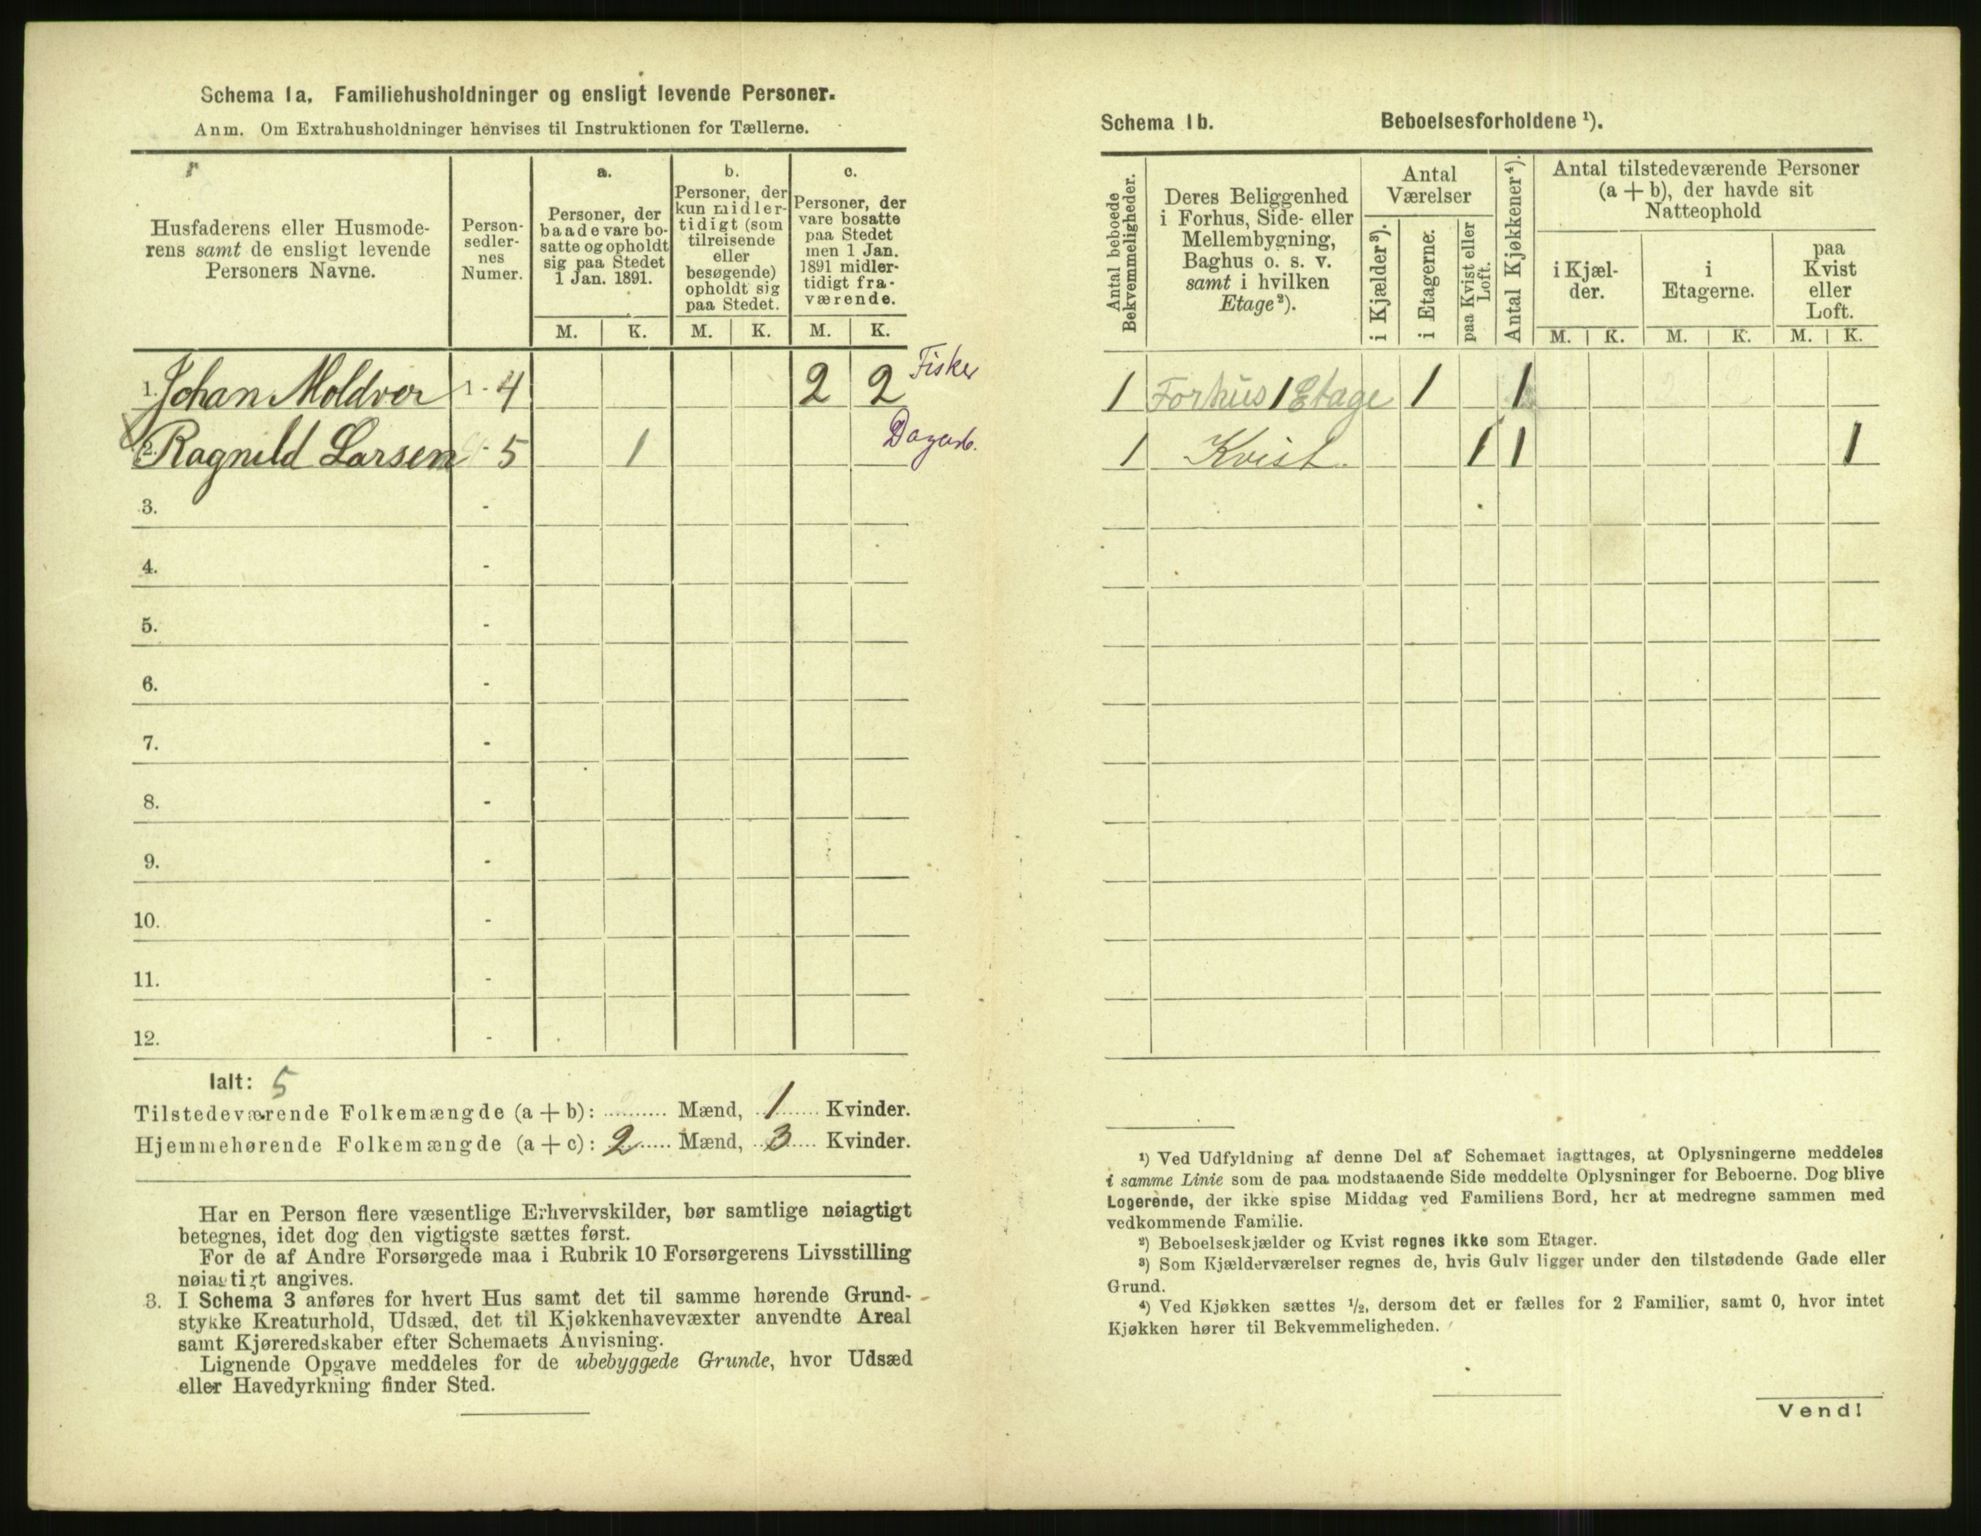 Schema 1a. Familiehusholdninger og ensligt levende Personer.
Anm. Om Extrahusholdninger henvises til Instruktionen for Tællerne.
Husfaderens eller Husmode-
rens samt de ensligt levende
Personers Navne.
Person-
sedler-
nes
Numer.
a.
Personer, der
baade vare bo-
satte og opholdt
sig paa Stedet
1 Jan. 1891.
b.
Personer, der
kun midler-
tidigt (som
tilreisende
eller
besøgende)
opholdt sig
paa Stedet.
c.
Personer, der
vare bosatte
paa Stedet
men 1 Jan.
1891 midler-
tidigt fra-
værende.
M. K. M. K. M. K.
1. Johan Moldver 1 - 4 2 2 Fisker
2. Ragnild Larsen - 5 1 Dagarb.
3. -
4. -
5. -
6. -
7. -
8. -
9. -
10. -
11. -
12. -
Ialt: 5
Tilstedeværende Folkemængde (a + b): ......... Mænd, 1 Kvinder.
Hjemmehørende Folkemængde (a + c): 2 Mænd, 3 Kvinder.
Har en Person flere væsentlige Erhvervskilder, bør samtlige nøiagtigt
betegnes, idet dog den vigtigste sættes først.
For de af Andre Forsørgede maa i Rubrik 10 Forsørgerens Livsstilling
nøiagtigt angives.
3. I Schema 3 anføres for hvert Hus samt det til samme hørende Grund-
stykke Kreaturhold, Udsæd, det til Kjøkkenhavevæxter anvendte Areal
samt Kjøreredskaber efter Schemaets Anvisning.
Lignende Opgave meddeles for de ubebyggede Grunde, hvor Udsæd
eller Havedyrkning finder Sted.
Schema 1b. Beboelsesforholdene ¹).
Antal beboede
Bekvemmeligheder.
Deres Beliggenhed
i Forhus, Side- eller
Mellembygning,
Baghus o. s. v.
samt i hvilken
Etage²).
Antal
Værelser
i Kjælder³).
i Etagerne.
paa Kvist eller
Loft.
Antal Kjøkkener⁴).
Antal tilstedeværende Personer
(a + b), der havde sit
Natteophold
i Kjæl-
der.
i
Etagerne.
paa
Kvist
eller
Loft.
M. K. M. K. M. K.
1 Forhus 1 Etage 1 1
1 Kvist. 1 1 1
¹) Ved Udfyldning af denne Del af Schemaet iagttages, at Oplysningerne meddeles
i samme Linie som de paa modstaaende Side meddelte Oplysninger for Beboerne. Dog blive
Logerende, der ikke spise Middag ved Familiens Bord, her at medregne sammen med
vedkommende Familie.
²) Beboelseskjælder og Kvist regnes ikke som Etager.
³) Som Kjælderværelser regnes de, hvis Gulv ligger under den tilstødende Gade eller
Grund.
⁴) Ved Kjøkken sættes ½, dersom det er fælles for 2 Familier, samt 0, hvor intet
Kjøkken hører til Bekvemmeligheden.
Vend!